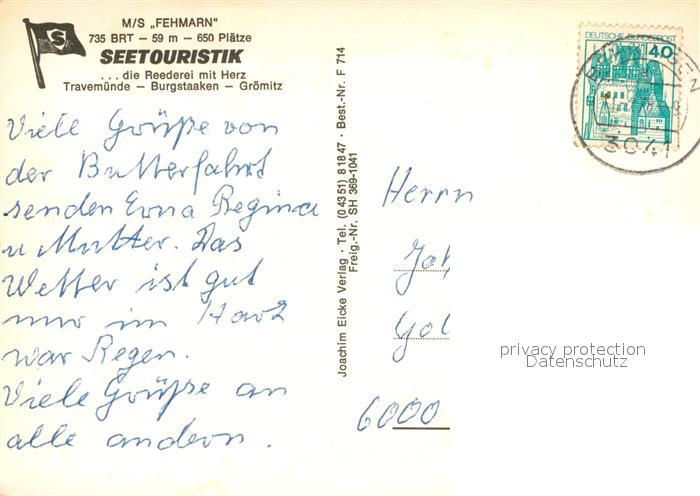 M/S „FEHMARN"
735 BRT – 59 m – 650 Plätze
SEETOURISTIK
. . . die Reederei mit Herz
Travemünde – Burgstaaken – Grömitz
Viele Grüße von
der Butterfahrt
senden Erna Regina
u Mutter. Das
Wetter ist gut
nur im Harz
war Regen.
Viele Grüße an
alle andern.
Joachim Eicke Verlag · Tel. (04351) 81847 · Best.-Nr. F 714
Freig.-Nr. SH 369-1041
DEUTSCHE BUNDESPOST
40
3041
Herrn
6000
privacy protection
Datenschutz